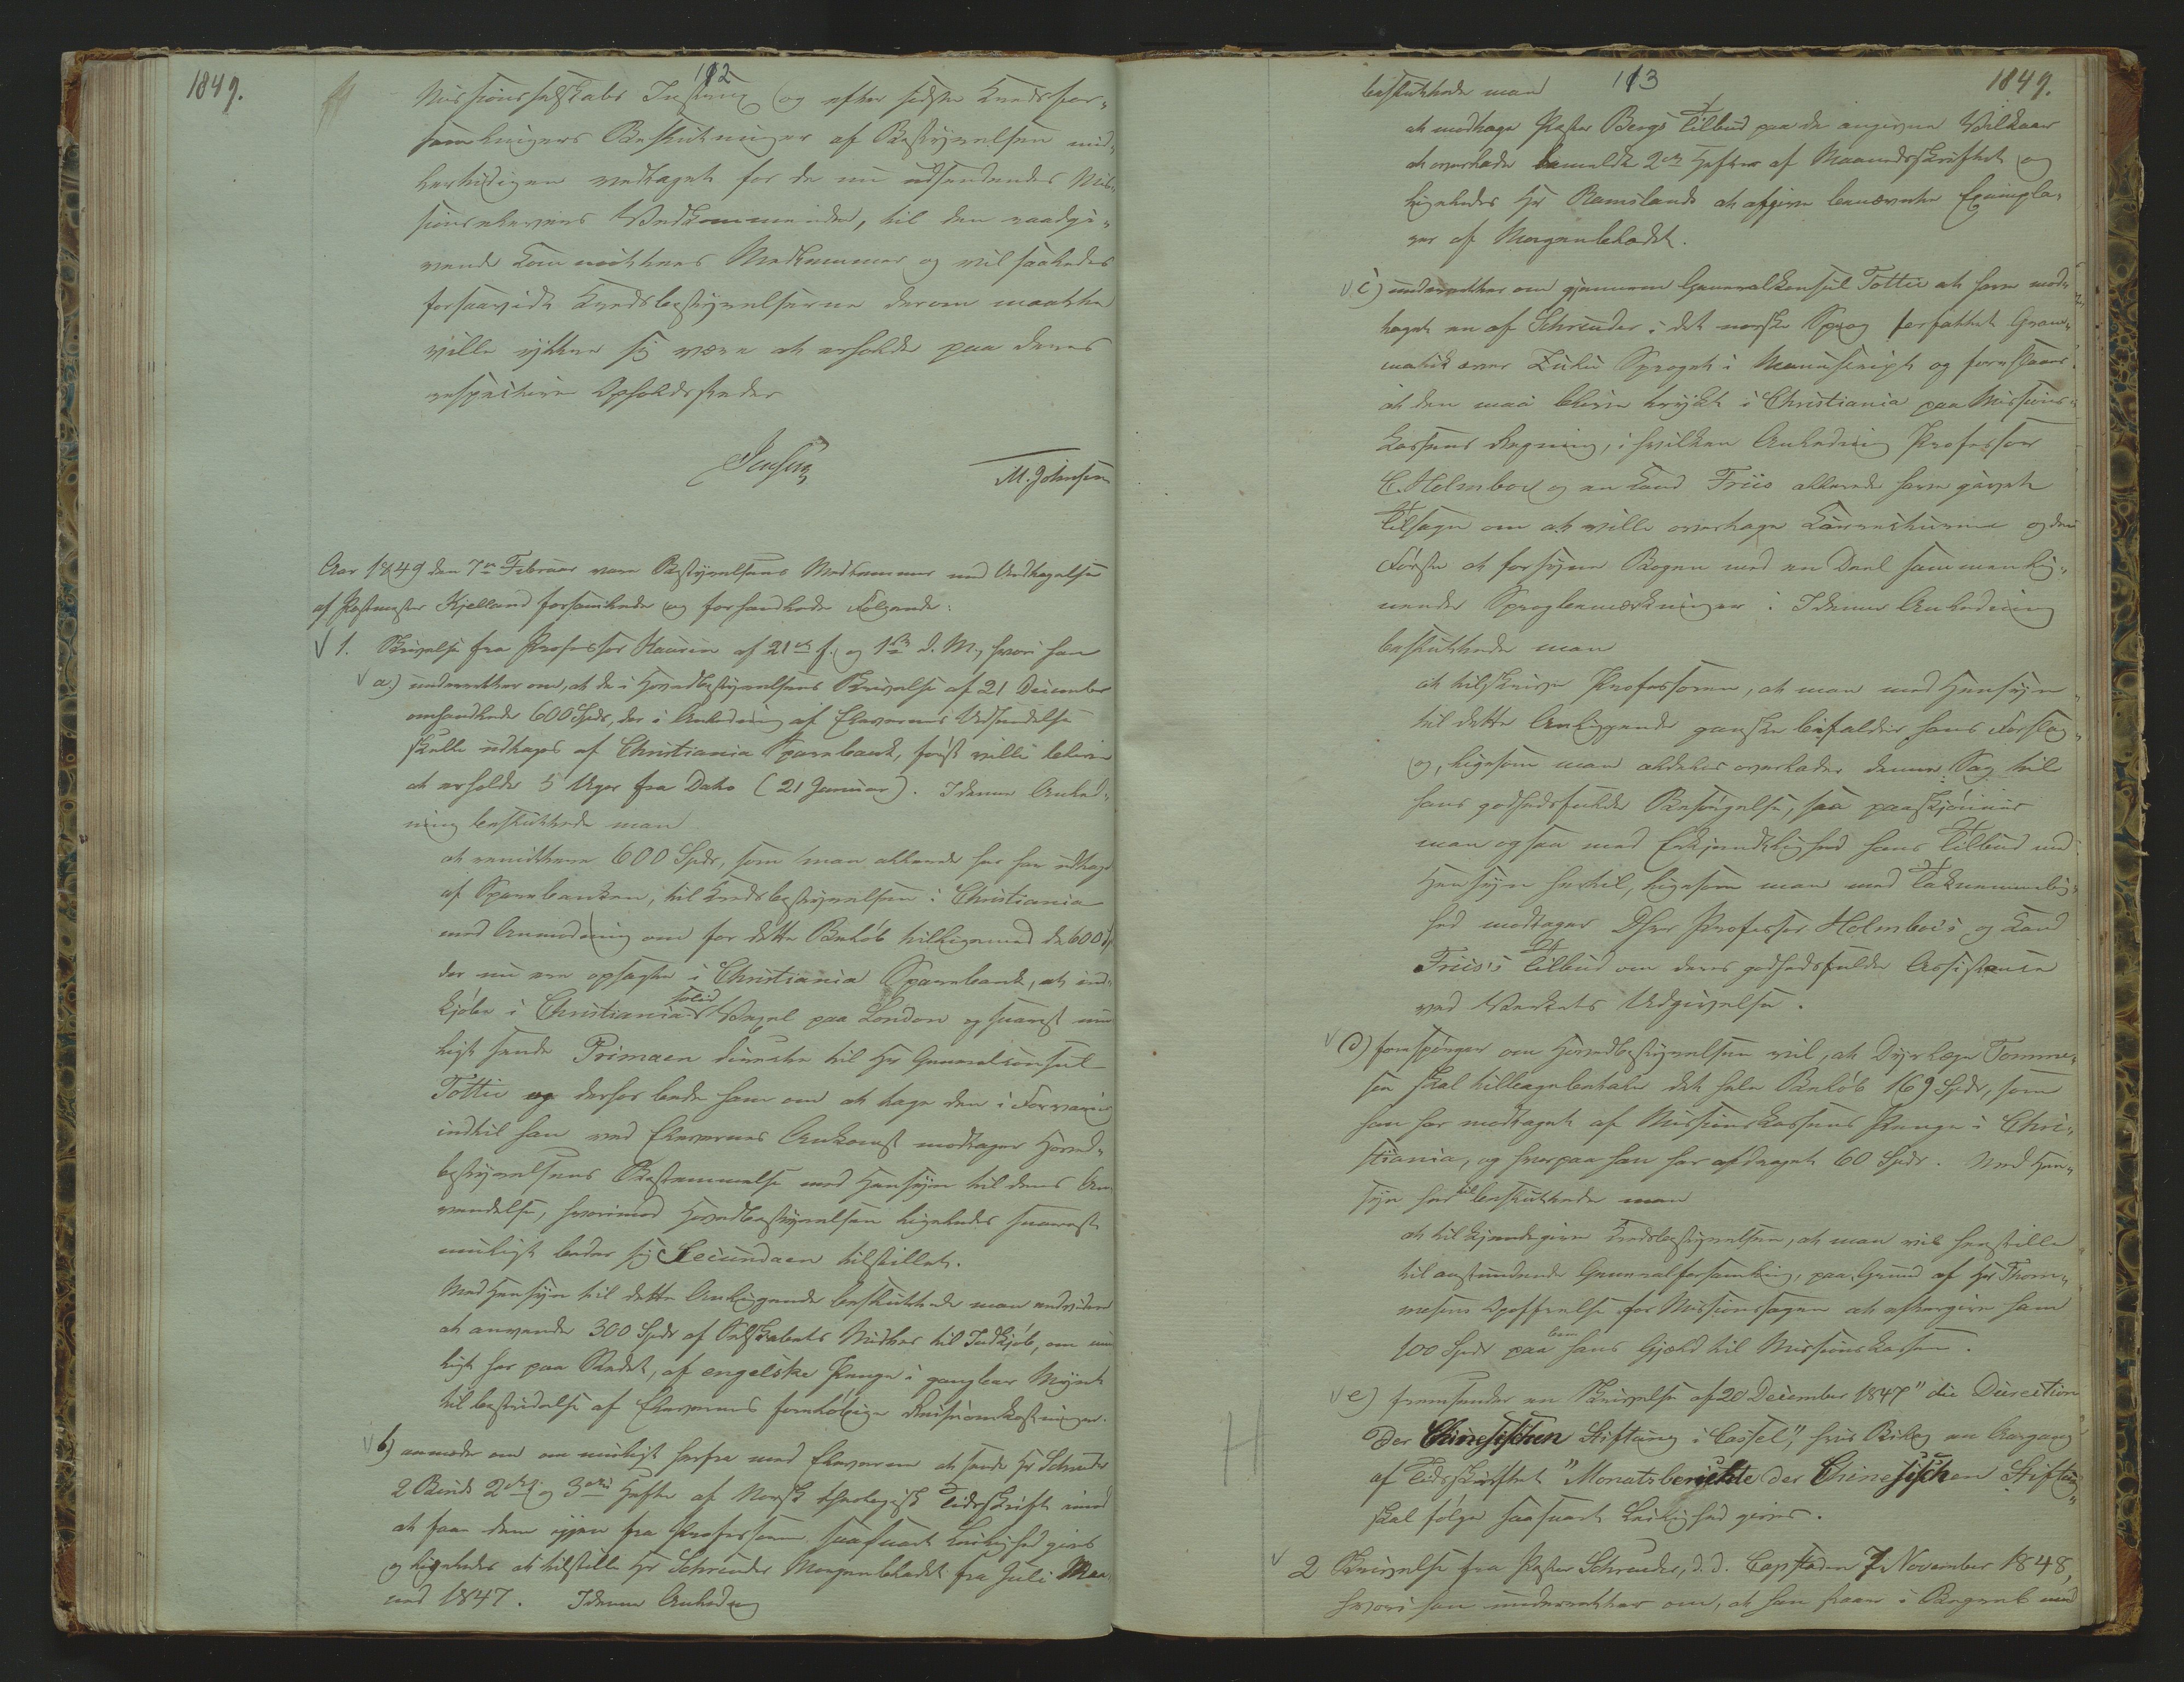 1849.
112
Missionsselskabs Instrux og efter sidste Kredsfor-
samlingers Beslutninger af Bestyrelsen mid-
lertidigen vedtaget for de nu udsendendes Mis-
sionselevers Vedkommende, til den raadgi-
vende Committees Medlemmer og vil saaledes
forsaavidt Kredsbestyrelserne derom maatte
ville yttre sig være at erholde paa deres
respective Opholdssteder
Jensen
M. Johnsen
Aar 1849 den 7de Februar vare Bestyrelsens Medlemmer med Undtagelse
af Postmester Kjelland forsamlede og forhandlede Følgende:
1. Skrivelse fra Professor Kaurin af 21de f. og 1ste d. M., hvori han
a.) underretter om, at de i Hovedbestyrelsens Skrivelse af 21 December
omhandlede 600 Spdr, der i Anledning af Elevernes Udsendelse
skulle udtages af Christiania Sparebank, først ville blive
at erholde 5 Uger fra Dato (21 Januar). I denne Anled-
ning besluttede man
at remittere 600 Spdr, som man allerede her har udtaget
af Sparebanken, til Kredsbestyrelsen i Christiania
med Anmodning om for dette Beløb tilligemed de 600 Sp
der nu ere opsagte i Christiania Sparebank, at ind-
kjøbe i Christiania solid Vexel paa London og snarest mu
ligt sende Primaen directe til Hr Generalconsul
Tottie og derhos bede ham om at tage den i Forvaring
indtil han ved Elevernes Ankomst modtager Hoved-
bestyrelsens Bestemmelse med Hensyn til dens An-
vendelse, hvorimod Hovedbestyrelsen ligeledes snarest
muligt beder sig Secundaen tilstillet.
Med Hensyn til dette Anliggende besluttede man endvidere
at anvende 300 Spdr af Selskabets Midler til Indkjøb, om mu
ligt her paa Stedet, af engelske Penge i gangbar Mynt
til bestridelse af Elevernes foreløbige Reiseomkostninger.
b) anmoder om om muligt herfra med Eleverne at sende Hr Schreuder
2 Binds 2det og 3die Hefte af Norsk theologisk Tidsskrift imod
at faae dem igjen fra Professoren saasnart Leilighed gives
og ligeledes at tilstille Hr Schreuder Morgenbladet fra Juli Maa
ned 1847. I denne Anledning
113
1849.
besluttede man
at modtage Pastor Bergs Tilbud paa de angivne Vilkaar
at overlade bemeldte 2de Hefter af Maanedsskriftet og
ligeledes Hr Ramslands at afgive benævnte Exempla-
rer af Morgenbladet.
c) underretter om gjennem Generalkonsul Tottie at have mod-
taget en af Schreuder i det norske Sprog forfattet Gram-
matik over Zulu Sproget i Manuscript og foreslaaer
at den maa blive trykt i Christiania paa Missions-
kassens Regning, i hvilken Anledning Professor
C. Holmboe og en Cand Friis allerede have givet
Tilsagn om at ville overtage Correcturerne og den
Første at forsyne Bogen med en Deel sammenlig-
nende Sprogbemærkninger. I denne Anledning
besluttede man
at tilskrive Professoren, at man med Hensyn
til dette Anliggende ganske bifalder hans Forslag
og, ligesom man aldeles overlader denne Sag til
hans godhedsfulde Besørgelse, saa paaskjønner
man ogsaa med Erkjendtlighed hans Tilbud med
Hensyn hertil, ligesom man med Taknemmelig-
hed modtager DHrr Professor Holmboe's og Cand
Friis's Tilbud om deres godhedsfulde Assistence
ved Værkets Udgivelse.
d) forespørger om Hovedbestyrelsen vil, at Dyrlæge Tomme-
sen skal tilbagebetale det hele Beløb 169 Spdr, som
han har modtaget af Missionskassens Penge i Chri-
stiania, og hvorpaa han har afdraget 60 Spdr. Med Hen-
syn hertil besluttede man
at tilkjendegive Kredsbestyrelsen, at man vil henstille
til anstundende Generalforsamling, paa Grund af Hr Thom-
mesens Opoffrelse for Missionssagen at eftergive ham
100 Spdr paa hans Gjæld til Missionskassen.
e) fremsender en Skrivelse af 20 December 1847 "die Direction
der Chinesischen Stiftung i Cassel", hvis Bilag en Aargang
af Tidsskriftet "Monatsberichte der Chinesischen Stiftung"
skal følge saasnart Leilighed gives.
2 Skrivelse fra Pastor Schreuder, d. d. Capstaden 7 November 1848,
hvori han underretter om, at han staaer i Begreb med